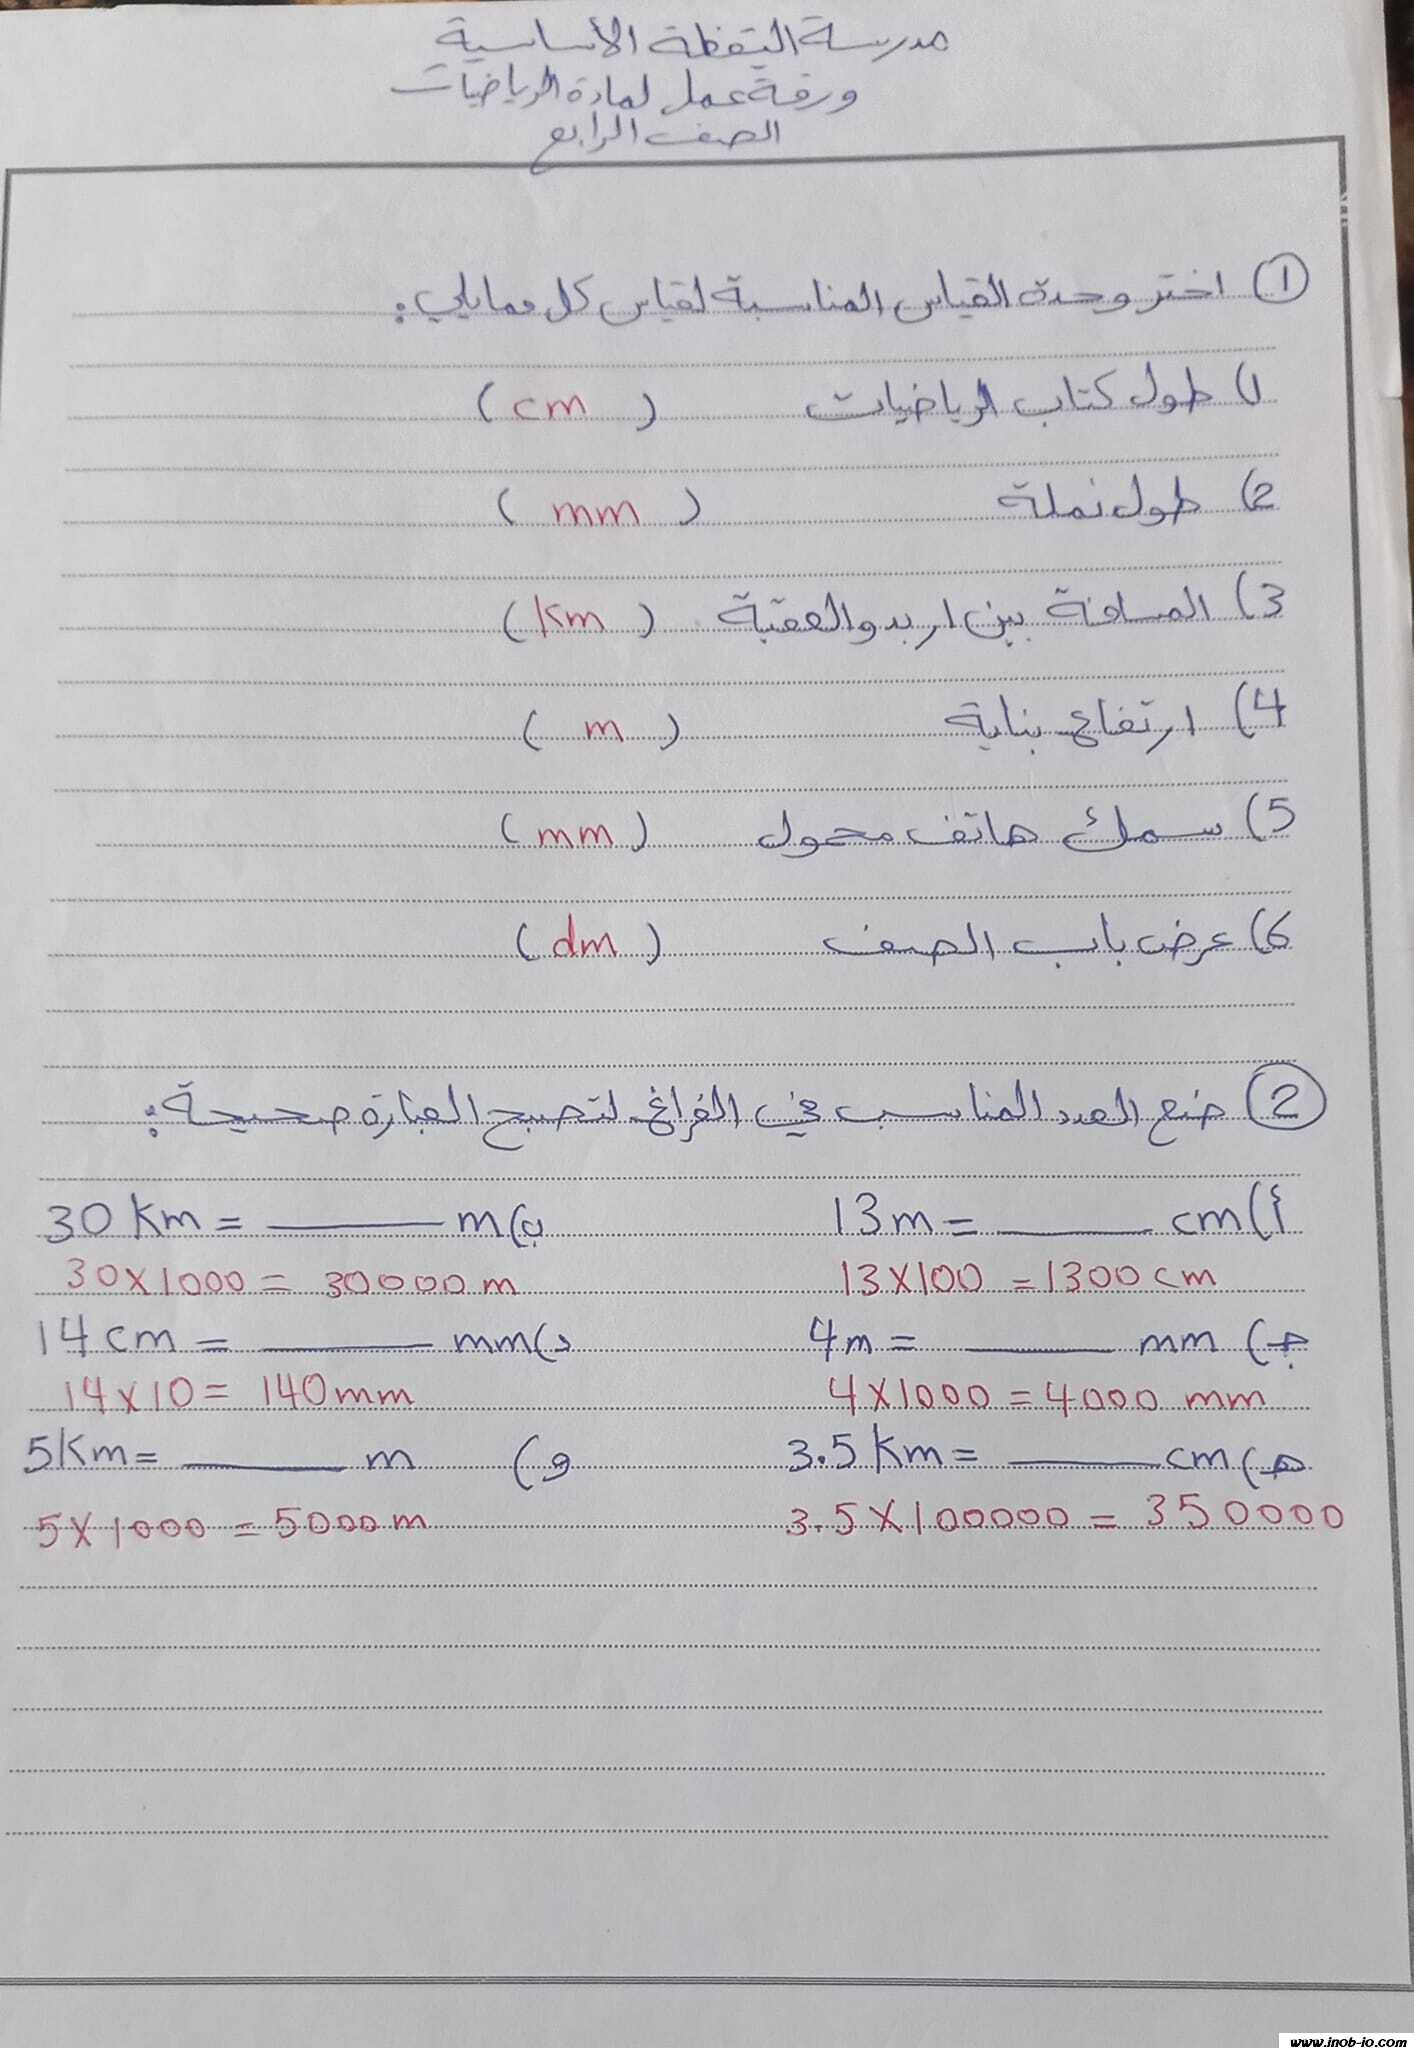 مدرسة اليقظة الأساسية
ورقة عمل لمادة الرياضيات
الصف الرابع
1 اختر وحدة القياس المناسبة لقياس كل مما يلي:
1) طول كتاب الرياضيات ( cm )
2) طول نملة ( mm )
3) المسافة بين اربد والعقبة ( km )
4) ارتفاع بناية ( m )
5) سمك هاتف محمول ( mm )
6) عرض باب الصف ( dm )
2 ضع العدد المناسب في الفراغ لتصبح العبارة صحيحة:
أ) 13m = ______ cm ب) 30 km = ______ m
13 x 100 = 1300 cm 30 x 1000 = 30000 m
جـ) 4m = ______ mm د) 14 cm = ______ mm
4 x 1000 = 4000 mm 14 x 10 = 140 mm
هـ) 3.5 km = ______ cm و) 5 km = ______ m
3.5 x 100000 = 350000 5 x 1000 = 5000 m
www.jnob-jo.com